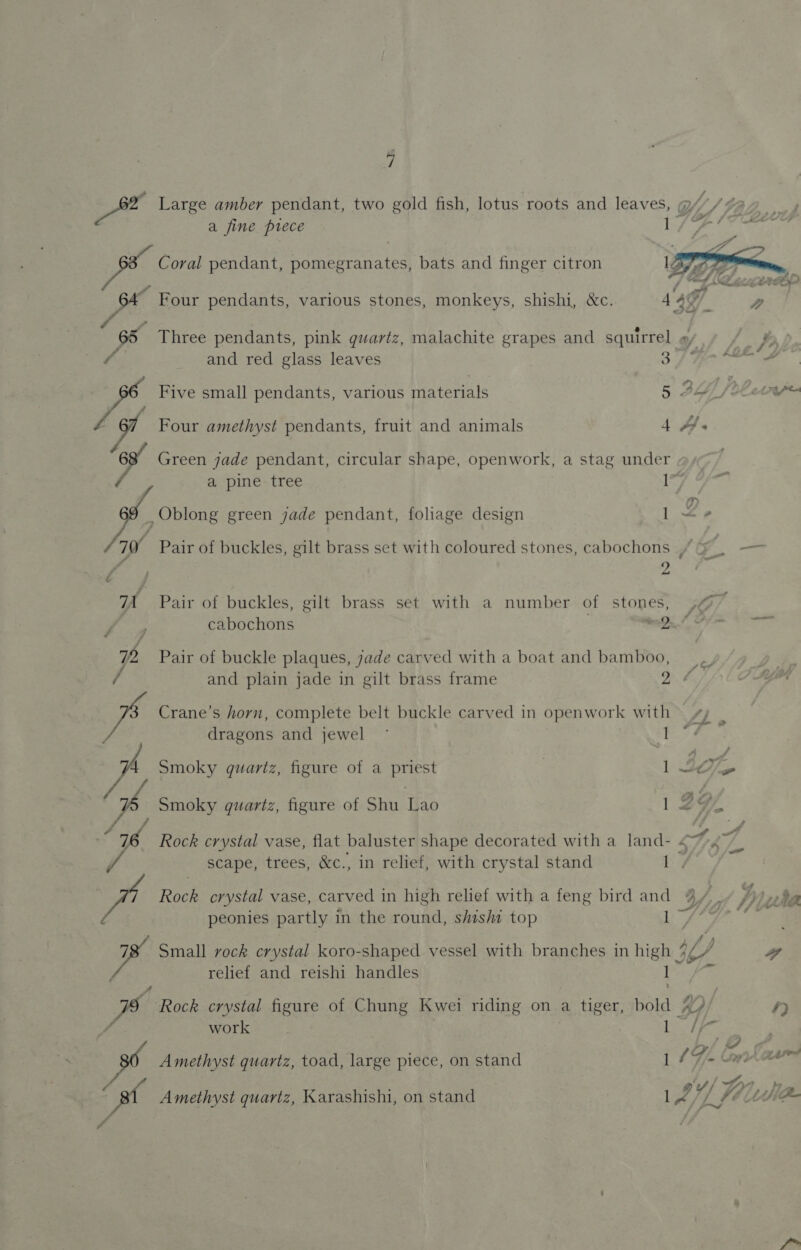 7
62 Large amber pendant, two gold fish, lotus roots and leaves,
a fine piece 1
63 Coral pendant, pomegranates, bats and finger citron 1
64 Four pendants, various stones, monkeys, shishi, &c. 4
65 Three pendants, pink quartz, malachite grapes and squirrel
and red glass leaves 3
66 Five small pendants, various materials 5
67 Four amethyst pendants, fruit and animals 4
68 Green jade pendant, circular shape, openwork, a stag under
a pine tree 1
69 Oblong green jade pendant, foliage design 1
70 Pair of buckles, gilt brass set with coloured stones, cabochons
2
71 Pair of buckles, gilt brass set with a number of stones,
cabochons 2
72 Pair of buckle plaques, jade carved with a boat and bamboo,
and plain jade in gilt brass frame 2
73 Crane's horn, complete belt buckle carved in openwork with
dragons and jewel 1
74 Smoky quartz, figure of a priest 1
75 Smoky quartz, figure of Shu Lao 1
76 Rock crystal vase, flat baluster shape decorated with a land-
scape, trees, &c., in relief, with crystal stand 1
77 Rock crystal vase, carved in high relief with a feng bird and
peonies partly in the round, shishi top 1
78 Small rock crystal koro-shaped vessel with branches in high
relief and reishi handles 1
79 Rock crystal figure of Chung Kwei riding on a tiger, bold
work 1
80 Amethyst quartz, toad, large piece, on stand 1
81 Amethyst quartz, Karashishi, on stand 1